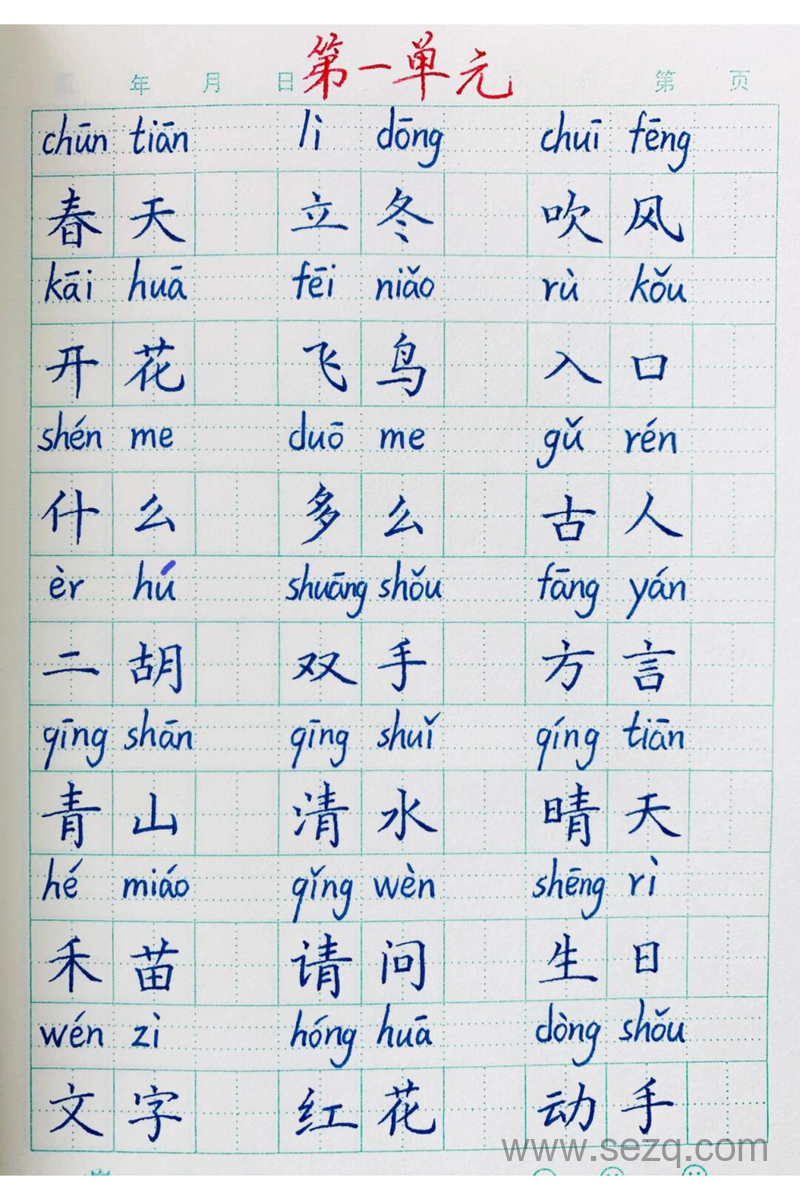 年 月 日 第一单元 第 页
chūn tiān lì dōng chuī fēng
春天 立冬 吹风
kāi huā fēi niǎo rù kǒu
开花 飞鸟 入口
shén me duō me gǔ rén
什么 多么 古人
èr hú shuāng shǒu fāng yán
二胡 双手 方言
qīng shān qīng shuǐ qíng tiān
青山 清水 晴天
hé miáo qǐng wèn shēng rì
禾苗 请问 生日
wén zì hóng huā dòng shǒu
文字 红花 动手
www.sezq.com